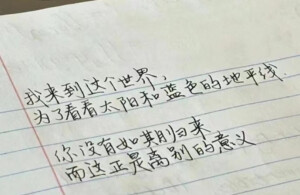 我来到这个世界，
为了看看太阳和蓝色的地平线
你没有如期归来
而这正是离别的意义